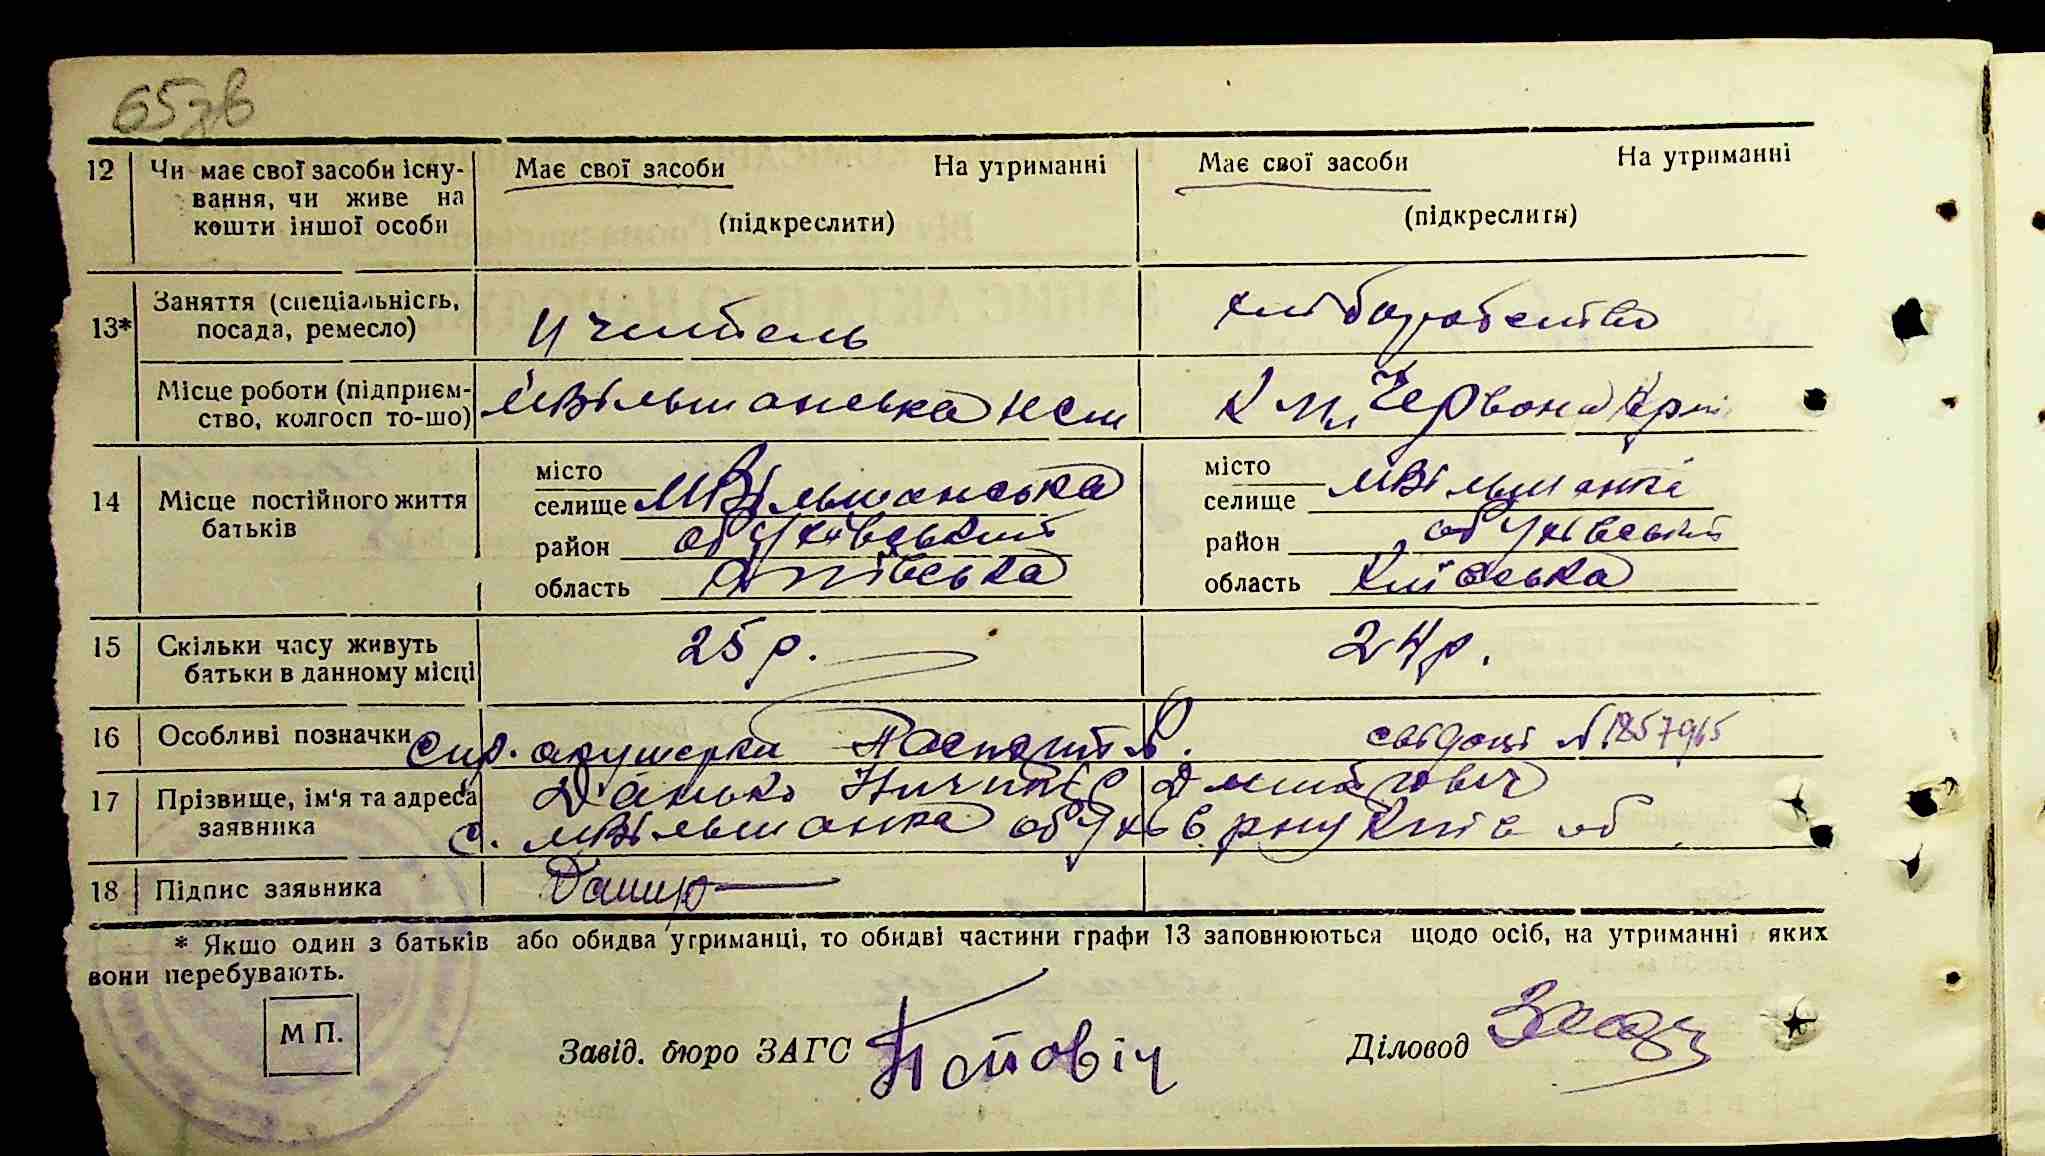 65зв
12 Чи має свої засоби існу- Має свої засоби На утриманні Має свої засоби На утриманні
вання, чи живе на
кошти іншої особи (підкреслити) (підкреслити)
13* Заняття (спеціальність, учитель хліборобство
посада, ремесло)
Місце роботи (підприєм- Мвільшанська нсш Червона
ство, колгосп то-що)
14 Місце постійного життя місто місто
батьків селище МВільшанська селище МВільшанка
район обухівський район обухівський
область область Київська
15 Скільки часу живуть 25 р. 24 р.
батьки в данному місці
16 Особливі позначки спр. акушерки Паспорт № 1857965
17 Прізвище, ім'я та адреса Данько
заявника с. МВільшанка обухів рну Київ об
18 Підпис заявника
* Якщо один з батьків або обидва утриманці, то обидві частини графи 13 заповнюються щодо осіб, на утриманні яких
вони перебувають.
М П.
Завід. бюро ЗАГС Попович Діловод